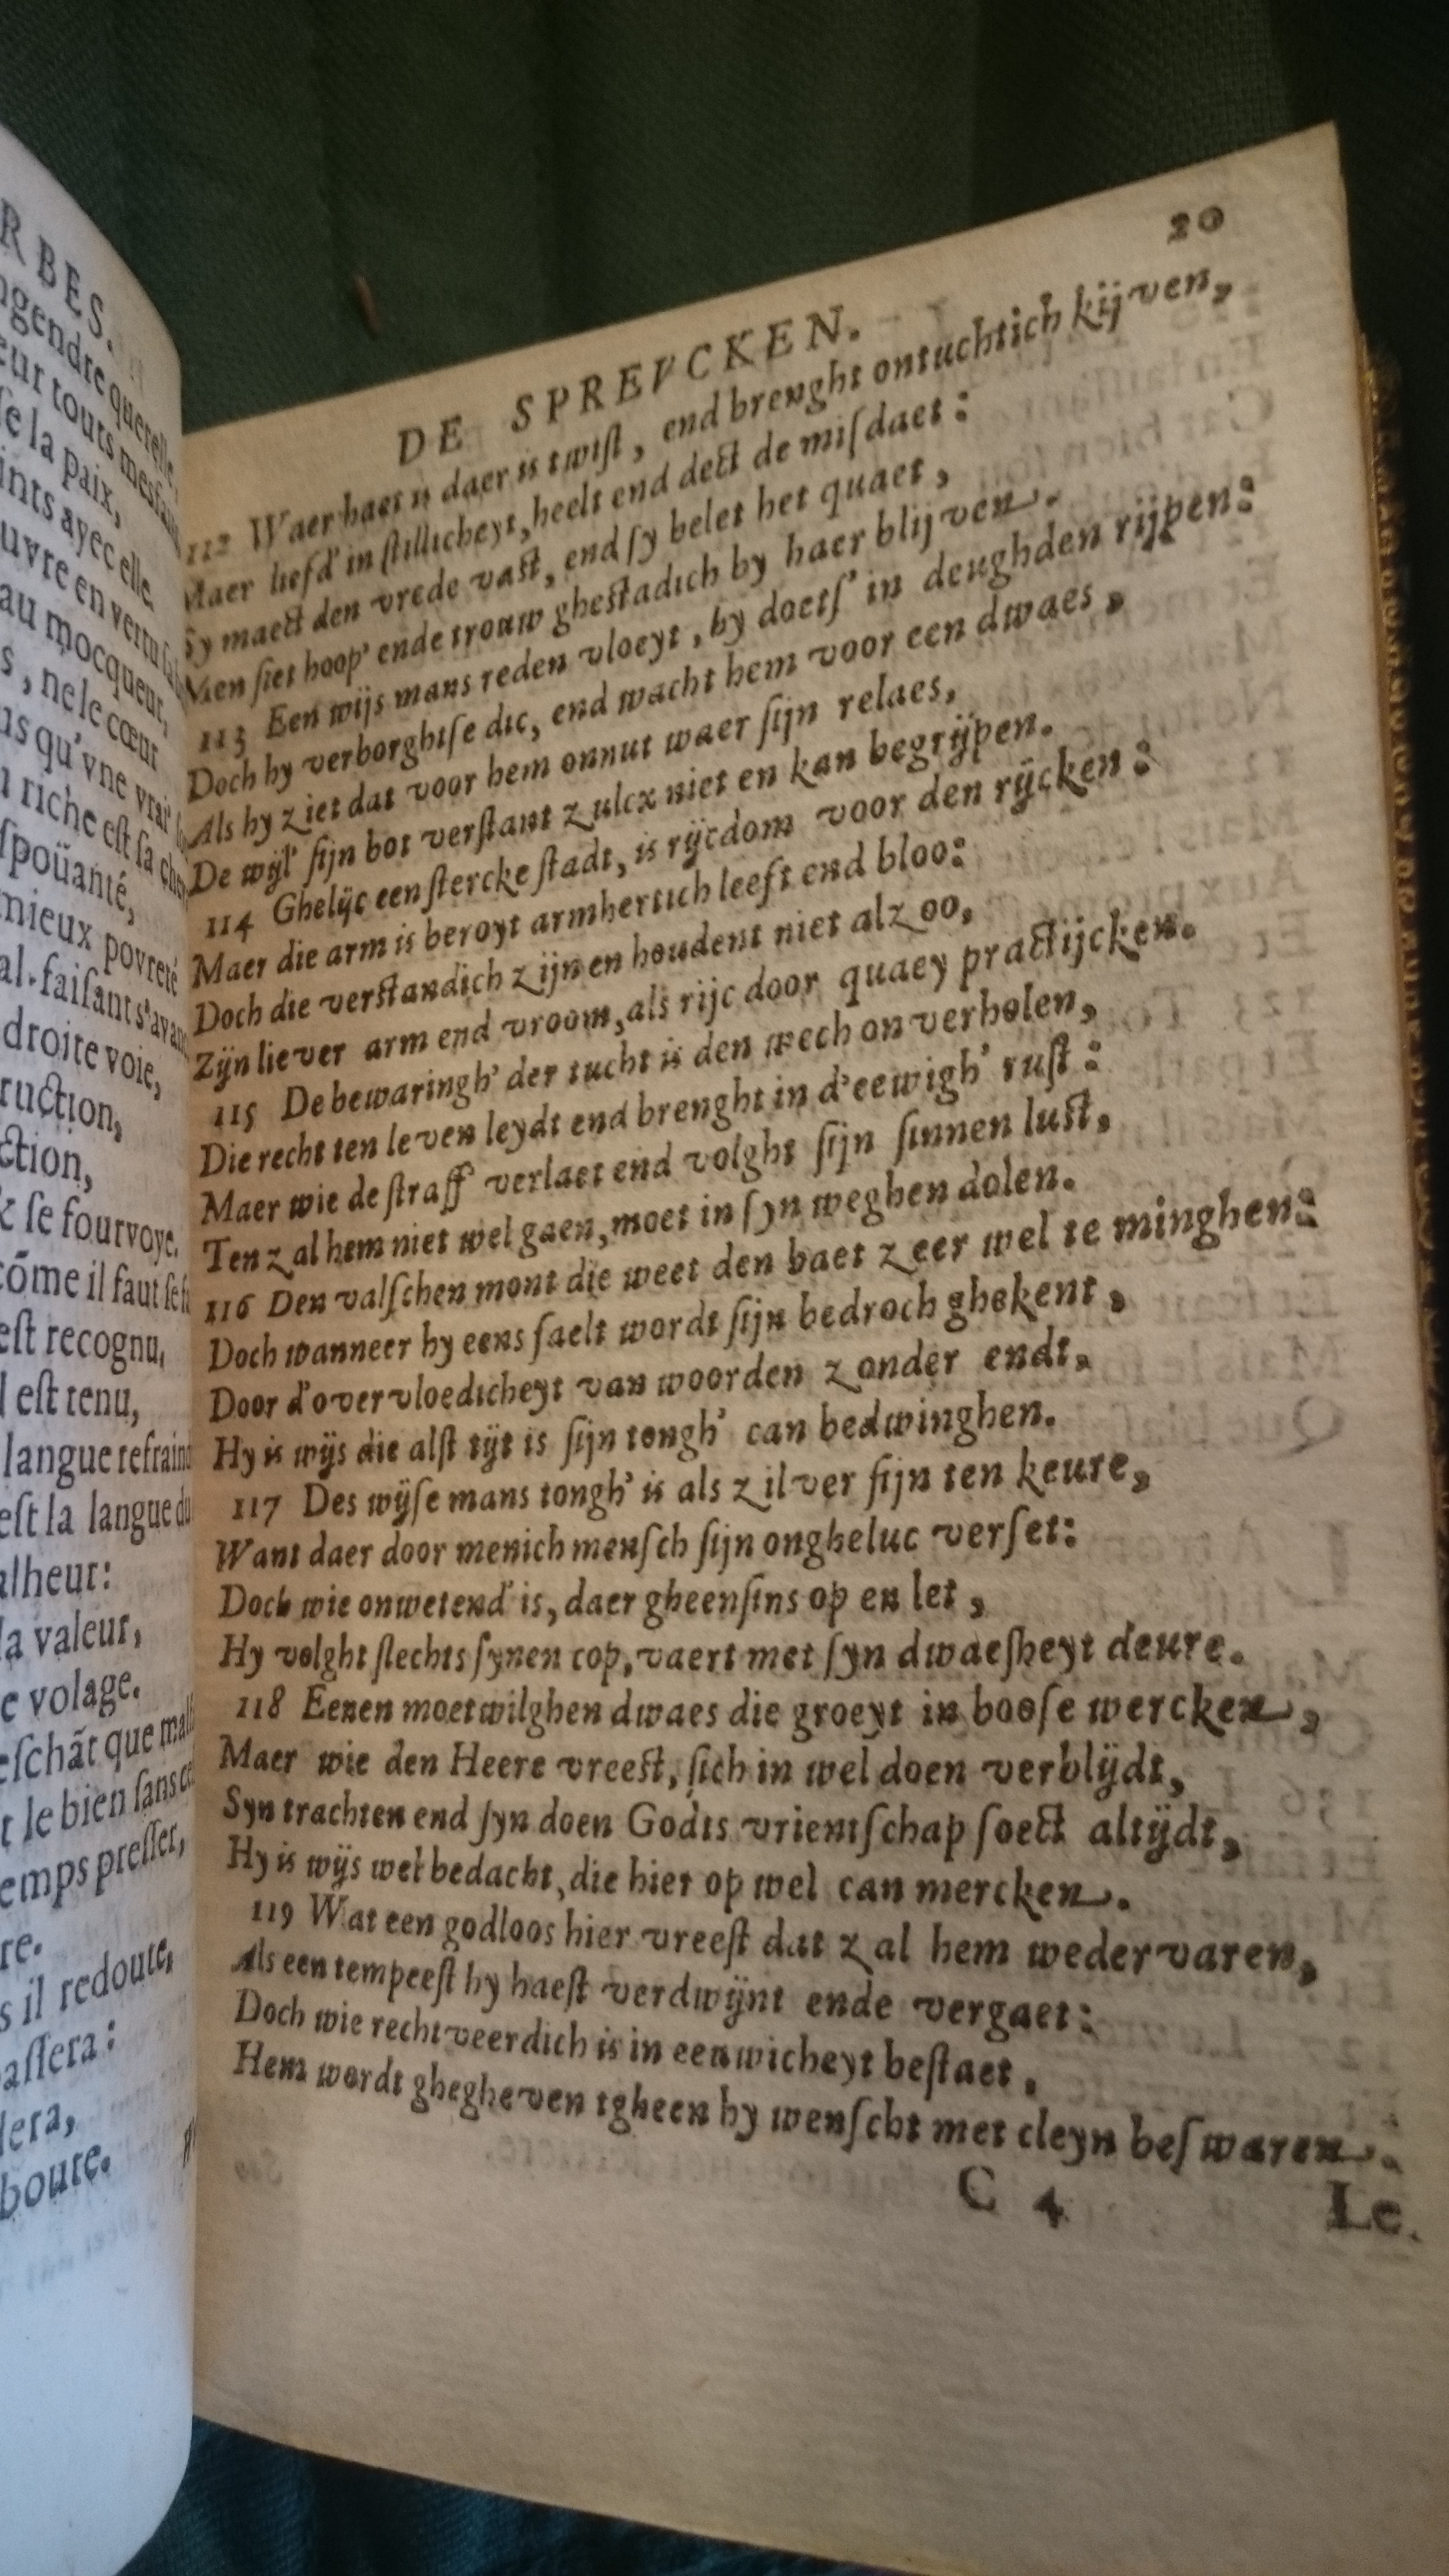 RBES.
ngendre querelle,
eur touts mesfai
ſe la paix,
ints avec elle.
uvre en vertu
au mocqueur,
s, ne le cœur
us qu'vne vrai
u riche eſt ſa
ſpoüanté,
mieux povreté
al-faiſant s'avan
droite voie,
ruction,
ction,
& ſe fourvoye.
cõme il faut ſe
eſt recognu,
l eſt tenu,
langue refrain
eſt la langue du
alheur:
la valeur,
e volage.
eſchãt que mal
t le bien ſans
emps preſſer,
re.
s il redoute,
aſſera:
lera,
boute.
20
DE SPREVCKEN.
112 Waer haet is daer is twiſt, end brenght ontuchtich kijven,
Maer liefd' in ſtillicheyt, heelt end dect de miſdaet:
Sy maect den vrede vast, end ſy belet het quaet,
Men ſiet hoop' ende trouw ghestadich by haer blijven.
113 Een wijs mans reden vloeyt, hy doetſ' in deughden rijpen:
Doch hy verborghtſe dic, end wacht hem voor een dwaes,
Als hy ziet dat voor hem onnut waer ſijn relaes,
De wijl' ſijn bot verſtant zulcx niet en kan begrijpen.
114 Ghelijc een ſtercke ſtadt, is rijcdom voor den rijcken:
Maer die arm is beroyt armhertich leeft end bloo:
Doch die verstandich zijn en houdent niet alzoo,
Zijn liever arm end vroom, als rijc door quaey practijcken.
115 De bewaringh' der tucht is den wech onverholen,
Die recht ten leven leydt end brenght in d'eewigh' ruſt:
Maer wie de ſtraff' verlaet end volght ſijn ſinnen lust,
Ten zal hem niet wel gaen, moet in ſyn weghen dolen.
116 Den valſchen mont die weet den haet zeer wel te minghen:
Doch wanneer hy eens faelt wordt ſijn bedroch ghekent,
Door d'overvloedicheyt van woorden zonder endt,
Hy is wijs die alſt tijt is ſijn tongh' can bedwinghen.
117 Des wijſe mans tongh' is als zilver fijn ten keure,
Want daer door menich menſch ſijn ongheluc verſet:
Doch wie onwetend' is, daer gheenſins op en let,
Hy volght ſlechts ſynen cop, vaert met ſyn dwaeſheyt deure.
118 Eenen moetwilghen dwaes die groeyt in booſe wercken,
Maer wie den Heere vreest, ſich in wel doen verblijdt,
Syn trachten end ſyn doen Godts vrientſchap ſoect altijdt,
Hy is wijs wel bedacht, die hier op wel can mercken.
119 Wat een godloos hier vreeſt dat zal hem wedervaren,
Als een tempeeſt hy haeſt verdwijnt ende vergaet:
Doch wie rechtveerdich is in eeuwicheyt beſtaet,
Hem wordt ghegheven tgheen hy wenſcht met cleyn beſwaren.
C 4
Le.